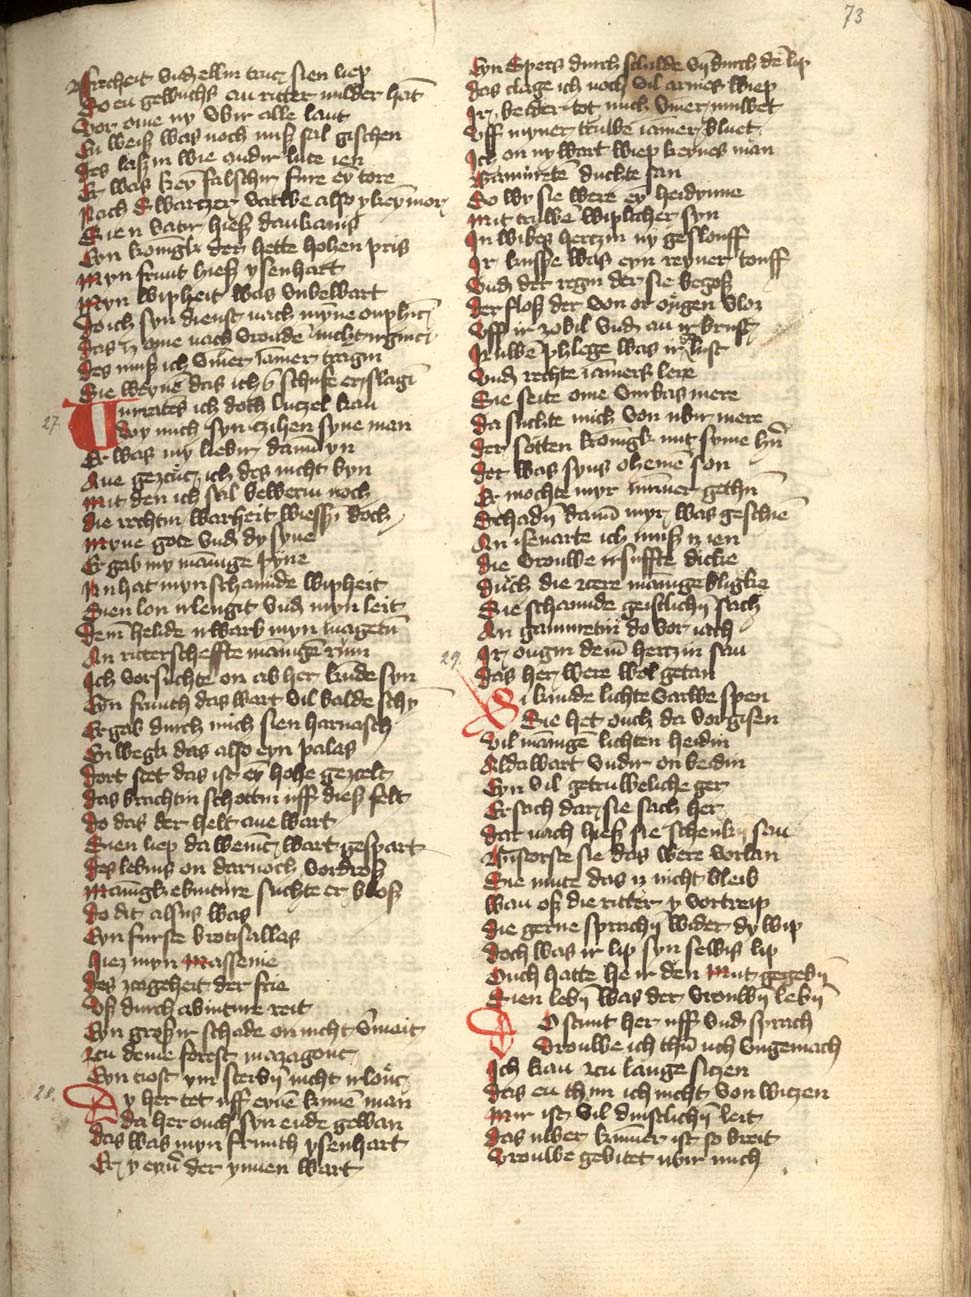 73
Kucheit vnd ellin truc sien liep
Do en gewuchß an ritter milder hāt
Vor ome ny vbir alle lant
En weiß was noch nuß sal gischen
des laß in wie andir lute ien
Er was keȳ falschir fure eȳ tore
Nach swartzer varwe also y keȳ mor
Sien vatir hieß dankanis
Eyn konigk der hette hohen pris
Myn frunt hieß ysenhart
Myn wipheit was vnbewart
Do ich syn dienst nach mȳne
das iz ome nach vroudē nicht irginc
des muß ich vm̄er iamer tragin
Sie weynē das ich schufe erslagī
27
Vurrates ich doch lutzel kan
Woy mich syn czihen syne man
Er was my liebir danne yn
Ane gezcuc ich des nicht byn
Mit den ich sal beweru noch
die rechtin warheit wiessin doch
Myne gote vnd dy syne
Er gab my māige pyne
Nu hat myn schamde wipheit
Sien lon irlengit vnd myn leit
Dem helide irwarb myn magetū
An ritterscheffte mānigē rum
Ich vorsuchte on ab her kunde syn
Eyn frunth das wart vil balde schȳ
Er gab durch mich sien harnasch
Enwegk das also eyn palas
dort stet das ist eȳ hohe gezcelt
das brachtin schottin uff dieß felt
do das der helt ane wart
Sien liep da wenic wart gespart
des lebins on darnoch vordroß
Manigk ebinture suchte er bloß
do dit alsus was
Eyn furste Protisallas
Hiez myn massenie
des zcageheit der frie
Vß durch abinture reit
Eyn groß ir schade on nicht v̄meit
Zcu deme forest in azagouc
Eyn tiost ym sterbī nicht irlouc
28
Dy her tet uff eynē kunē man
da her ouch syn ende gewan
das was myn frunth ysenhart
Er y eynir der ynnen wart
Eyn spers durch schilde vn̄ durch dē lip
das clage ich noch vil armes wiep
Ir beider tot mich vmer muwet
Uff myner truwe iamer bluet
Ich on ny wart wiep keynes man
Gamurete duchte san
So wy sie were eȳ heidynne
Mit truwe wiplicher syn
In wibes hertzin ny geslouff
Ir kusshe was eyn reyner touff
Vnd der regin der sie begoß
der floß der von or ougen vloz
Uff ir zobil vnd an ir brust
Ruwe phlege was ir lust
Vnd rechte iamers lere
Sie seite ome vurbas mere
da suchte mich von ubir mere
der sotten konigk mit syme her
der was syns ohemē son
Er mochte myr nūmer gethū
Schadin danne myr was geschiē
An isenarte ich muß iz ien
die vrouwe irsuffte dicke
Durch die zcere mange blugke
Sie schamde gestlichin sach
An gammretin do vor iach
29
Ir ougin dem hertzin san
das her were wol getan
Si kunde lichte varwe spen
Sie het ouch da vor gisen
Vil manigē lichten heidin
Alda wart vndir on beidin
Eyn vil getruweliche ger
Er sach dar sie sach her
dar nach hieß sie schenkin san
Getorste sie das were vorlan
Sie mute das iz nicht bleib
wan oß die ritter y vortreip
die gerne sprachin wider dy wip
doch was ir lip syn selbis lip
Ouch hatte he ir den mut gegebin
Sien lebin was der vrouwin lebin
Do stunt her uff vnd sprach
Vrouwe ich thū uch vngemach
Ich kan zcu lange sitzen
das en thun ich nicht von witzen
Mir ist vil dinstlichin leit
das uwer kummer ist so breit
Vrouwe gebitet ubir mich